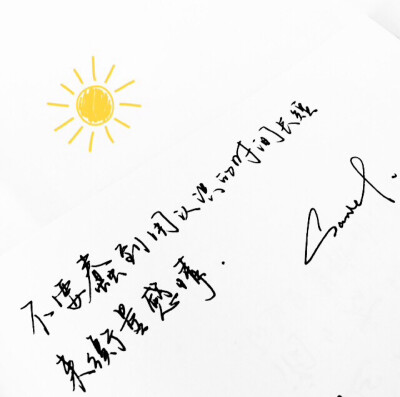 不要蠢到用认识的时间长短
来衡量感情.